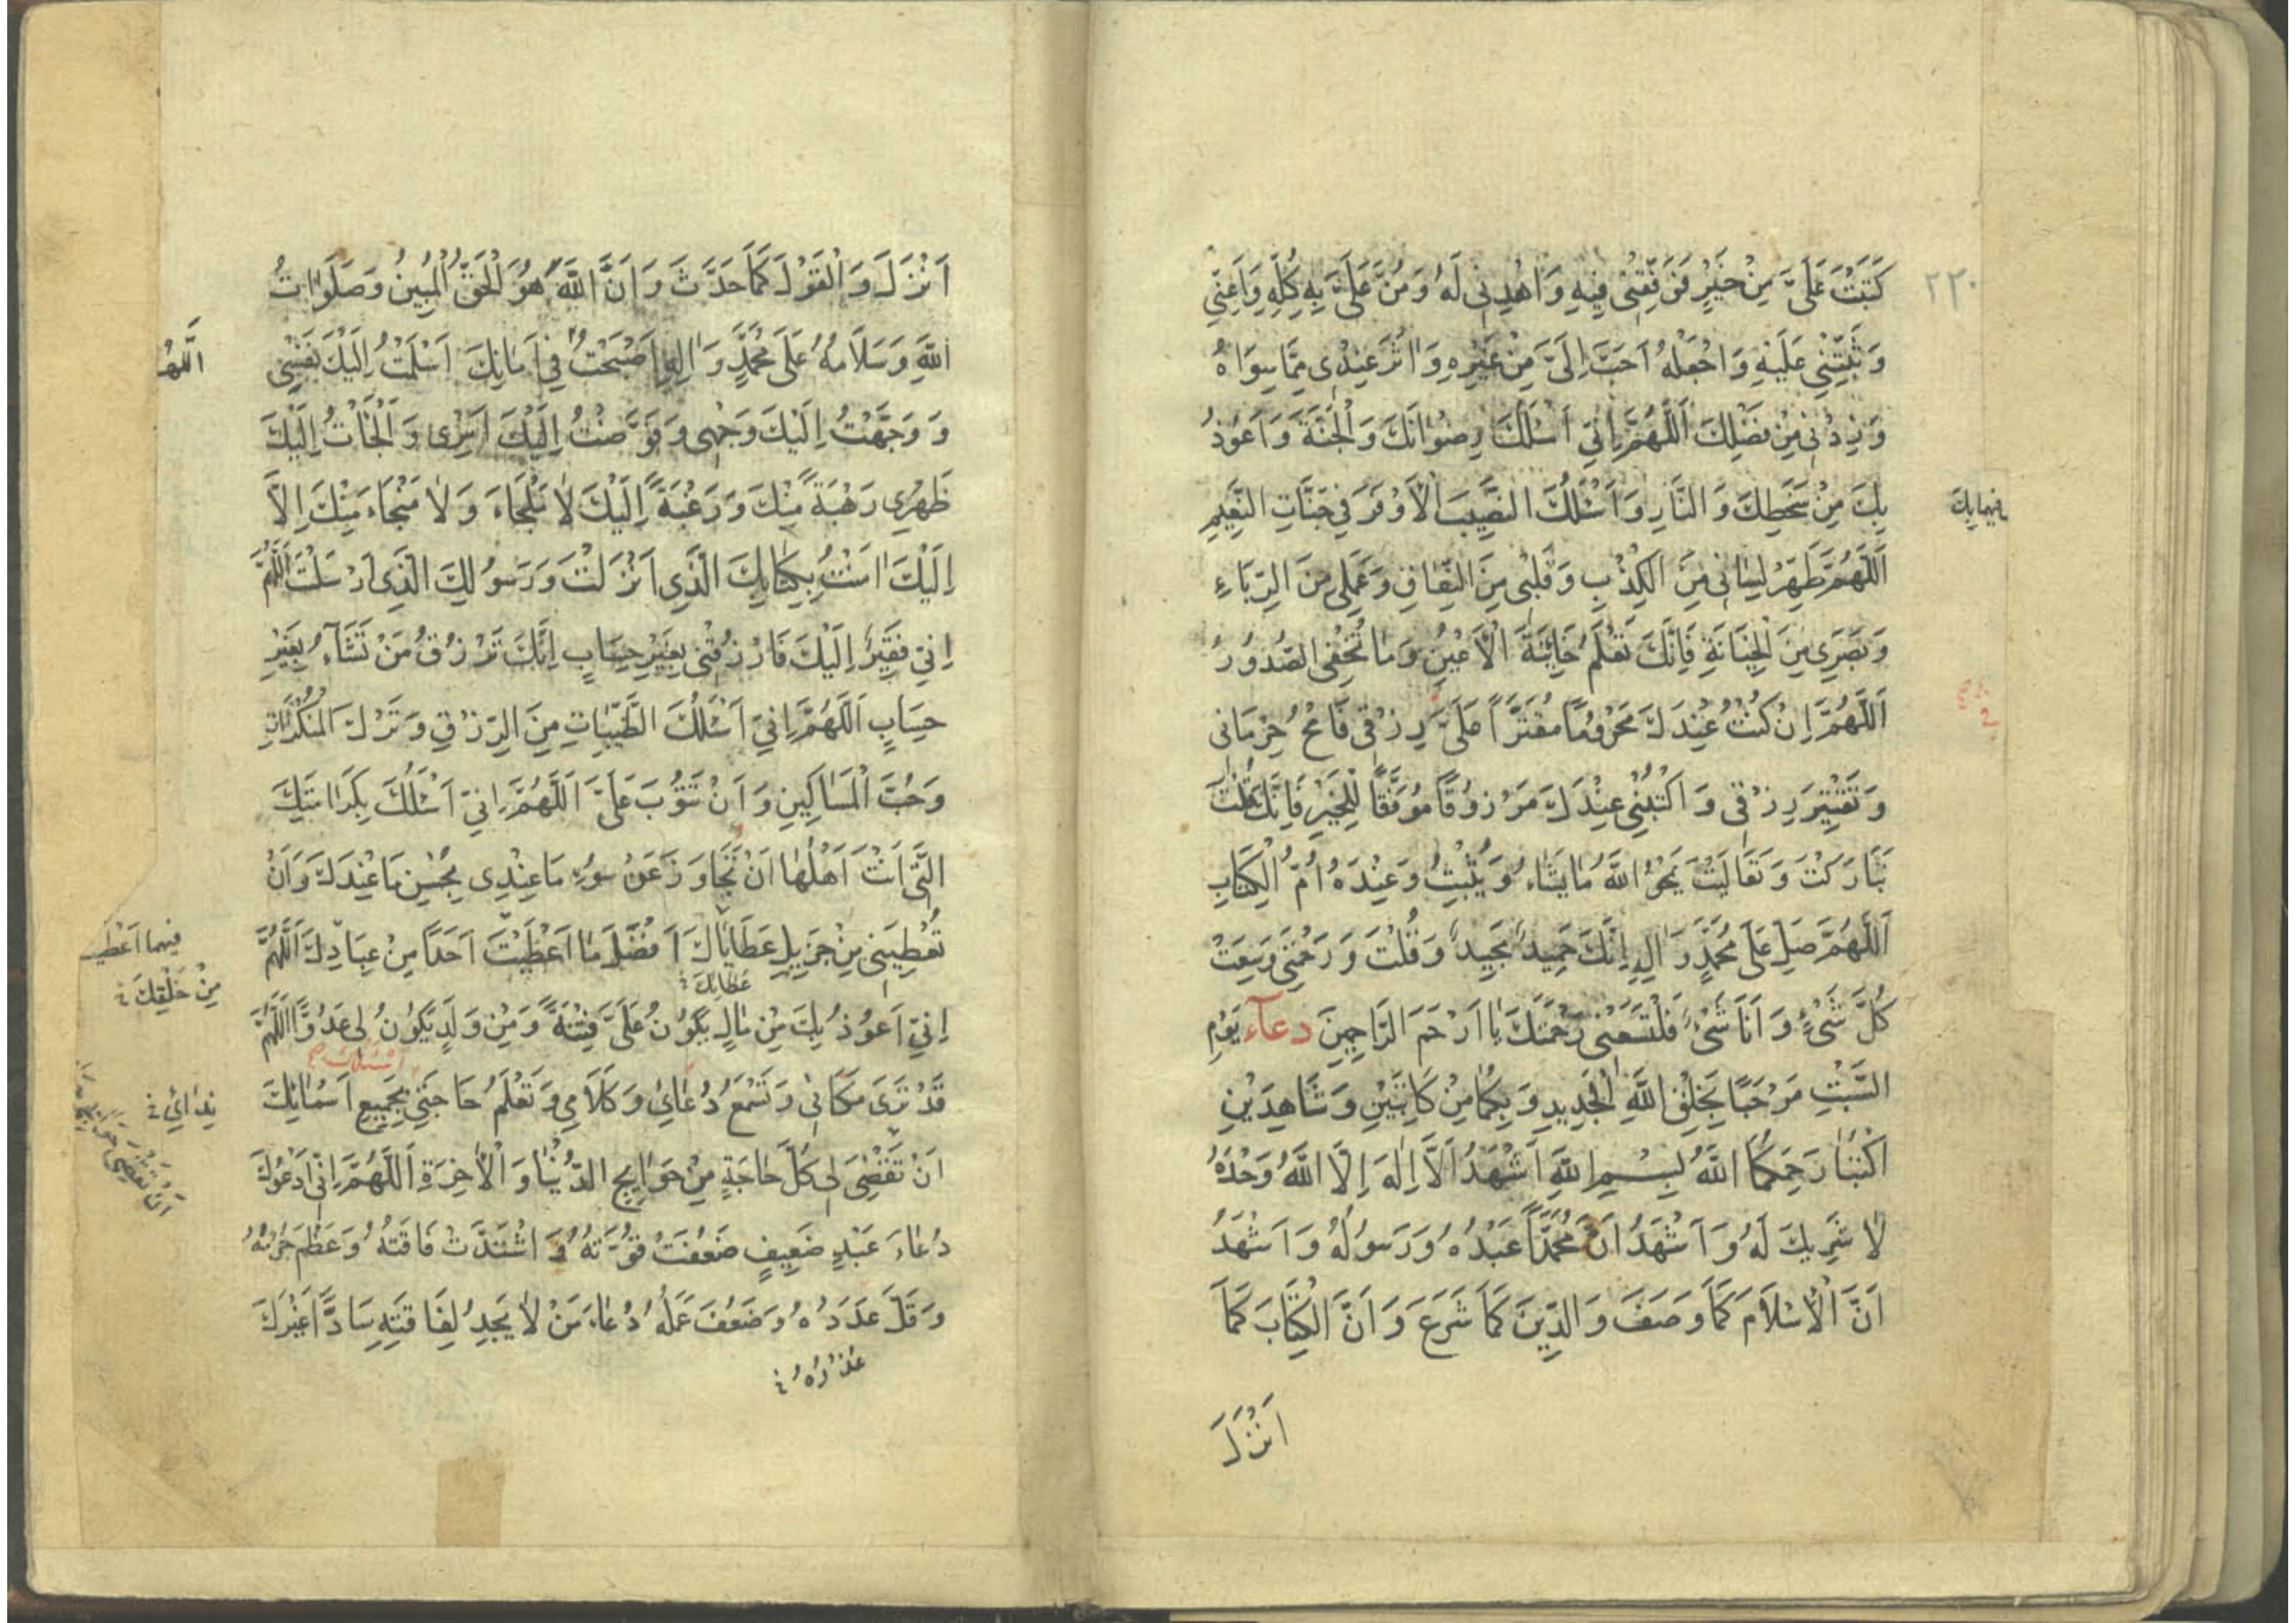 ٢٢٠
كَتَبْتَ عَلَيَّ مِنْ خَيْرٍ فَوَفِّقْنِي فِيهِ وَاهْدِنِي لَهُ وَمُنَّ عَلَيَّ بِهِ كُلِّهِ وَاَعِنِّي
وَثَبِّتْنِي عَلَيْهِ وَاجْعَلْهُ اَحَبَّ اِلَيَّ مِنْ غَيْرِهِ وَاٰثَرَ عِنْدِي مِمَّا سِوَاهُ
وَزِدْنِي مِنْ فَضْلِكَ اَللّٰهُمَّ اِنِّي اَسْئَلُكَ رِضْوَانَكَ وَالْجَنَّةَ وَاَعُوذُ
بِكَ مِنْ سَخَطِكَ وَالنَّارِ وَاَسْئَلُكَ النَّصِيبَ الْاَوْفَرَ فِي جَنَّاتِ النَّعِيمِ
اَللّٰهُمَّ طَهِّرْ لِسَانِي مِنَ الْكِذْبِ وَقَلْبِي مِنَ النِّفَاقِ وَعَمَلِي مِنَ الرِّيَاءِ
وَبَصَرِي مِنَ الْخِيَانَةِ فَاِنَّكَ تَعْلَمُ خَائِنَةَ الْاَعْيُنِ وَمَا تُخْفِي الصُّدُورُ
اَللّٰهُمَّ اِنْ كُنْتُ عِنْدَكَ مَحْرُومًا مُقَتَّرًا عَلَيَّ رِزْقِي فَامْحُ حِرْمَانِي
وَتَقْتِيرَ رِزْقِي وَاكْتُبْنِي عِنْدَكَ مَرْزُوقًا مُوَفَّقًا لِلْخَيْرِ فَاِنَّكَ قُلْتَ
تَبَارَكْتَ وَتَعَالَيْتَ يَمْحُو اللّٰهُ مَا يَشَاءُ وَيُثْبِتُ وَعِنْدَهُ اُمُّ الْكِتَابِ
اَللّٰهُمَّ صَلِّ عَلَى مُحَمَّدٍ وَاٰلِهِ اِنَّكَ حَمِيدٌ مَجِيدٌ وَقُلْتَ وَرَحْمَتِي وَسِعَتْ
كُلَّ شَيْءٍ وَاَنَا شَيْءٌ فَلْتَسَعْنِي رَحْمَتُكَ يَا اَرْحَمَ الرَّاحِمِينَ دعآء يَوْمِ
السَّبْتِ مَرْحَبًا بِخَلْقِ اللّٰهِ الْجَدِيدِ وَبِكُمَا مِنْ كَاتِبَيْنِ وَشَاهِدَيْنِ
اكْتُبَا رَحِمَكُمَا اللّٰهُ بِسْمِ اللّٰهِ اَشْهَدُ اَلَّا اِلٰهَ اِلَّا اللّٰهُ وَحْدَهُ
لَا شَرِيكَ لَهُ وَاَشْهَدُ اَنَّ مُحَمَّدًا عَبْدُهُ وَرَسُولُهُ وَاَشْهَدُ
اَنَّ الْاِسْلَامَ كَمَا وَصَفَ وَالدِّينَ كَمَا شَرَعَ وَاَنَّ الْكِتَابَ كَمَا
اَنْزَلَ
اَنْزَلَ وَالْقَوْلَ كَمَا حَدَّثَ وَاَنَّ اللّٰهَ هُوَ الْحَقُّ الْمُبِينُ وَصَلَوَاتُ
اللّٰهِ وَسَلَامُهُ عَلَى مُحَمَّدٍ وَاٰلِهِ اَصْبَحْتُ فِي اَمَانِكَ اَسْلَمْتُ اِلَيْكَ نَفْسِي
وَوَجَّهْتُ اِلَيْكَ وَجْهِي وَفَوَّضْتُ اِلَيْكَ اَمْرِي وَاَلْجَأْتُ اِلَيْكَ
ظَهْرِي رَهْبَةً مِنْكَ وَرَغْبَةً اِلَيْكَ لَا مَلْجَاءَ وَلَا مَنْجَاءَ مِنْكَ اِلَّا
اِلَيْكَ اٰمَنْتُ بِكِتَابِكَ الَّذِي اَنْزَلْتَ وَرَسُولِكَ الَّذِي اَرْسَلْتَ اَللّٰهُمَّ
اِنِّي فَقِيرٌ اِلَيْكَ فَارْزُقْنِي بِغَيْرِ حِسَابٍ اِنَّكَ تَرْزُقُ مَنْ تَشَآءُ بِغَيْرِ
حِسَابٍ اَللّٰهُمَّ اِنِّي اَسْئَلُكَ الطَّيِّبَاتِ مِنَ الرِّزْقِ وَتَرْكَ الْمُنْكَرَاتِ
وَحُبَّ الْمَسَاكِينِ وَاَنْ تَتُوبَ عَلَيَّ اَللّٰهُمَّ اِنِّي اَسْئَلُكَ بِكَرَامَتِكَ
الَّتِي اَنْتَ اَهْلُهَا اَنْ تَجَاوَزَ عَنْ سُوءِ مَا عِنْدِي بِحُسْنِ مَا عِنْدَكَ وَاَنْ
تُعْطِيَنِي مِنْ جَزِيلِ عَطَايَاكَ اَفْضَلَ مَا اَعْطَيْتَ اَحَدًا مِنْ عِبَادِكَ اَللّٰهُمَّ
عَطَائِكَ
فيما اَعْطَيْـ
مِنْ خَلْقِكَ
اِنِّي اَعُوذُ بِكَ مِنْ مَالٍ يَكُونُ عَلَيَّ فِتْنَةً وَمِنْ وَلَدٍ يَكُونُ لِي عَدُوًّا اَللّٰهُمَّ
قَدْ تَرَى مَكَانِي وَتَسْمَعُ دُعَائِي وَكَلَامِي وَتَعْلَمُ حَاجَتِي بِجَمِيعِ اَسْمَائِكَ
نِدَائِي
اَنْ تَقْضِيَ لِي كُلَّ حَاجَةٍ مِنْ حَوَائِجِ الدُّنْيَا وَالْاٰخِرَةِ اَللّٰهُمَّ اِنِّي اَدْعُوكَ
دُعَاءَ عَبْدٍ ضَعِيفٍ ضَعُفَتْ قُوَّتُهُ وَاشْتَدَّتْ فَاقَتُهُ وَعَظُمَ جُرْمُهُ
وَقَلَّ عَدَدُهُ وَضَعُفَ عَمَلُهُ دُعَاءَ مَنْ لَا يَجِدُ لِفَاقَتِهِ سَادًّا غَيْرَكَ
عُذْرُهُ